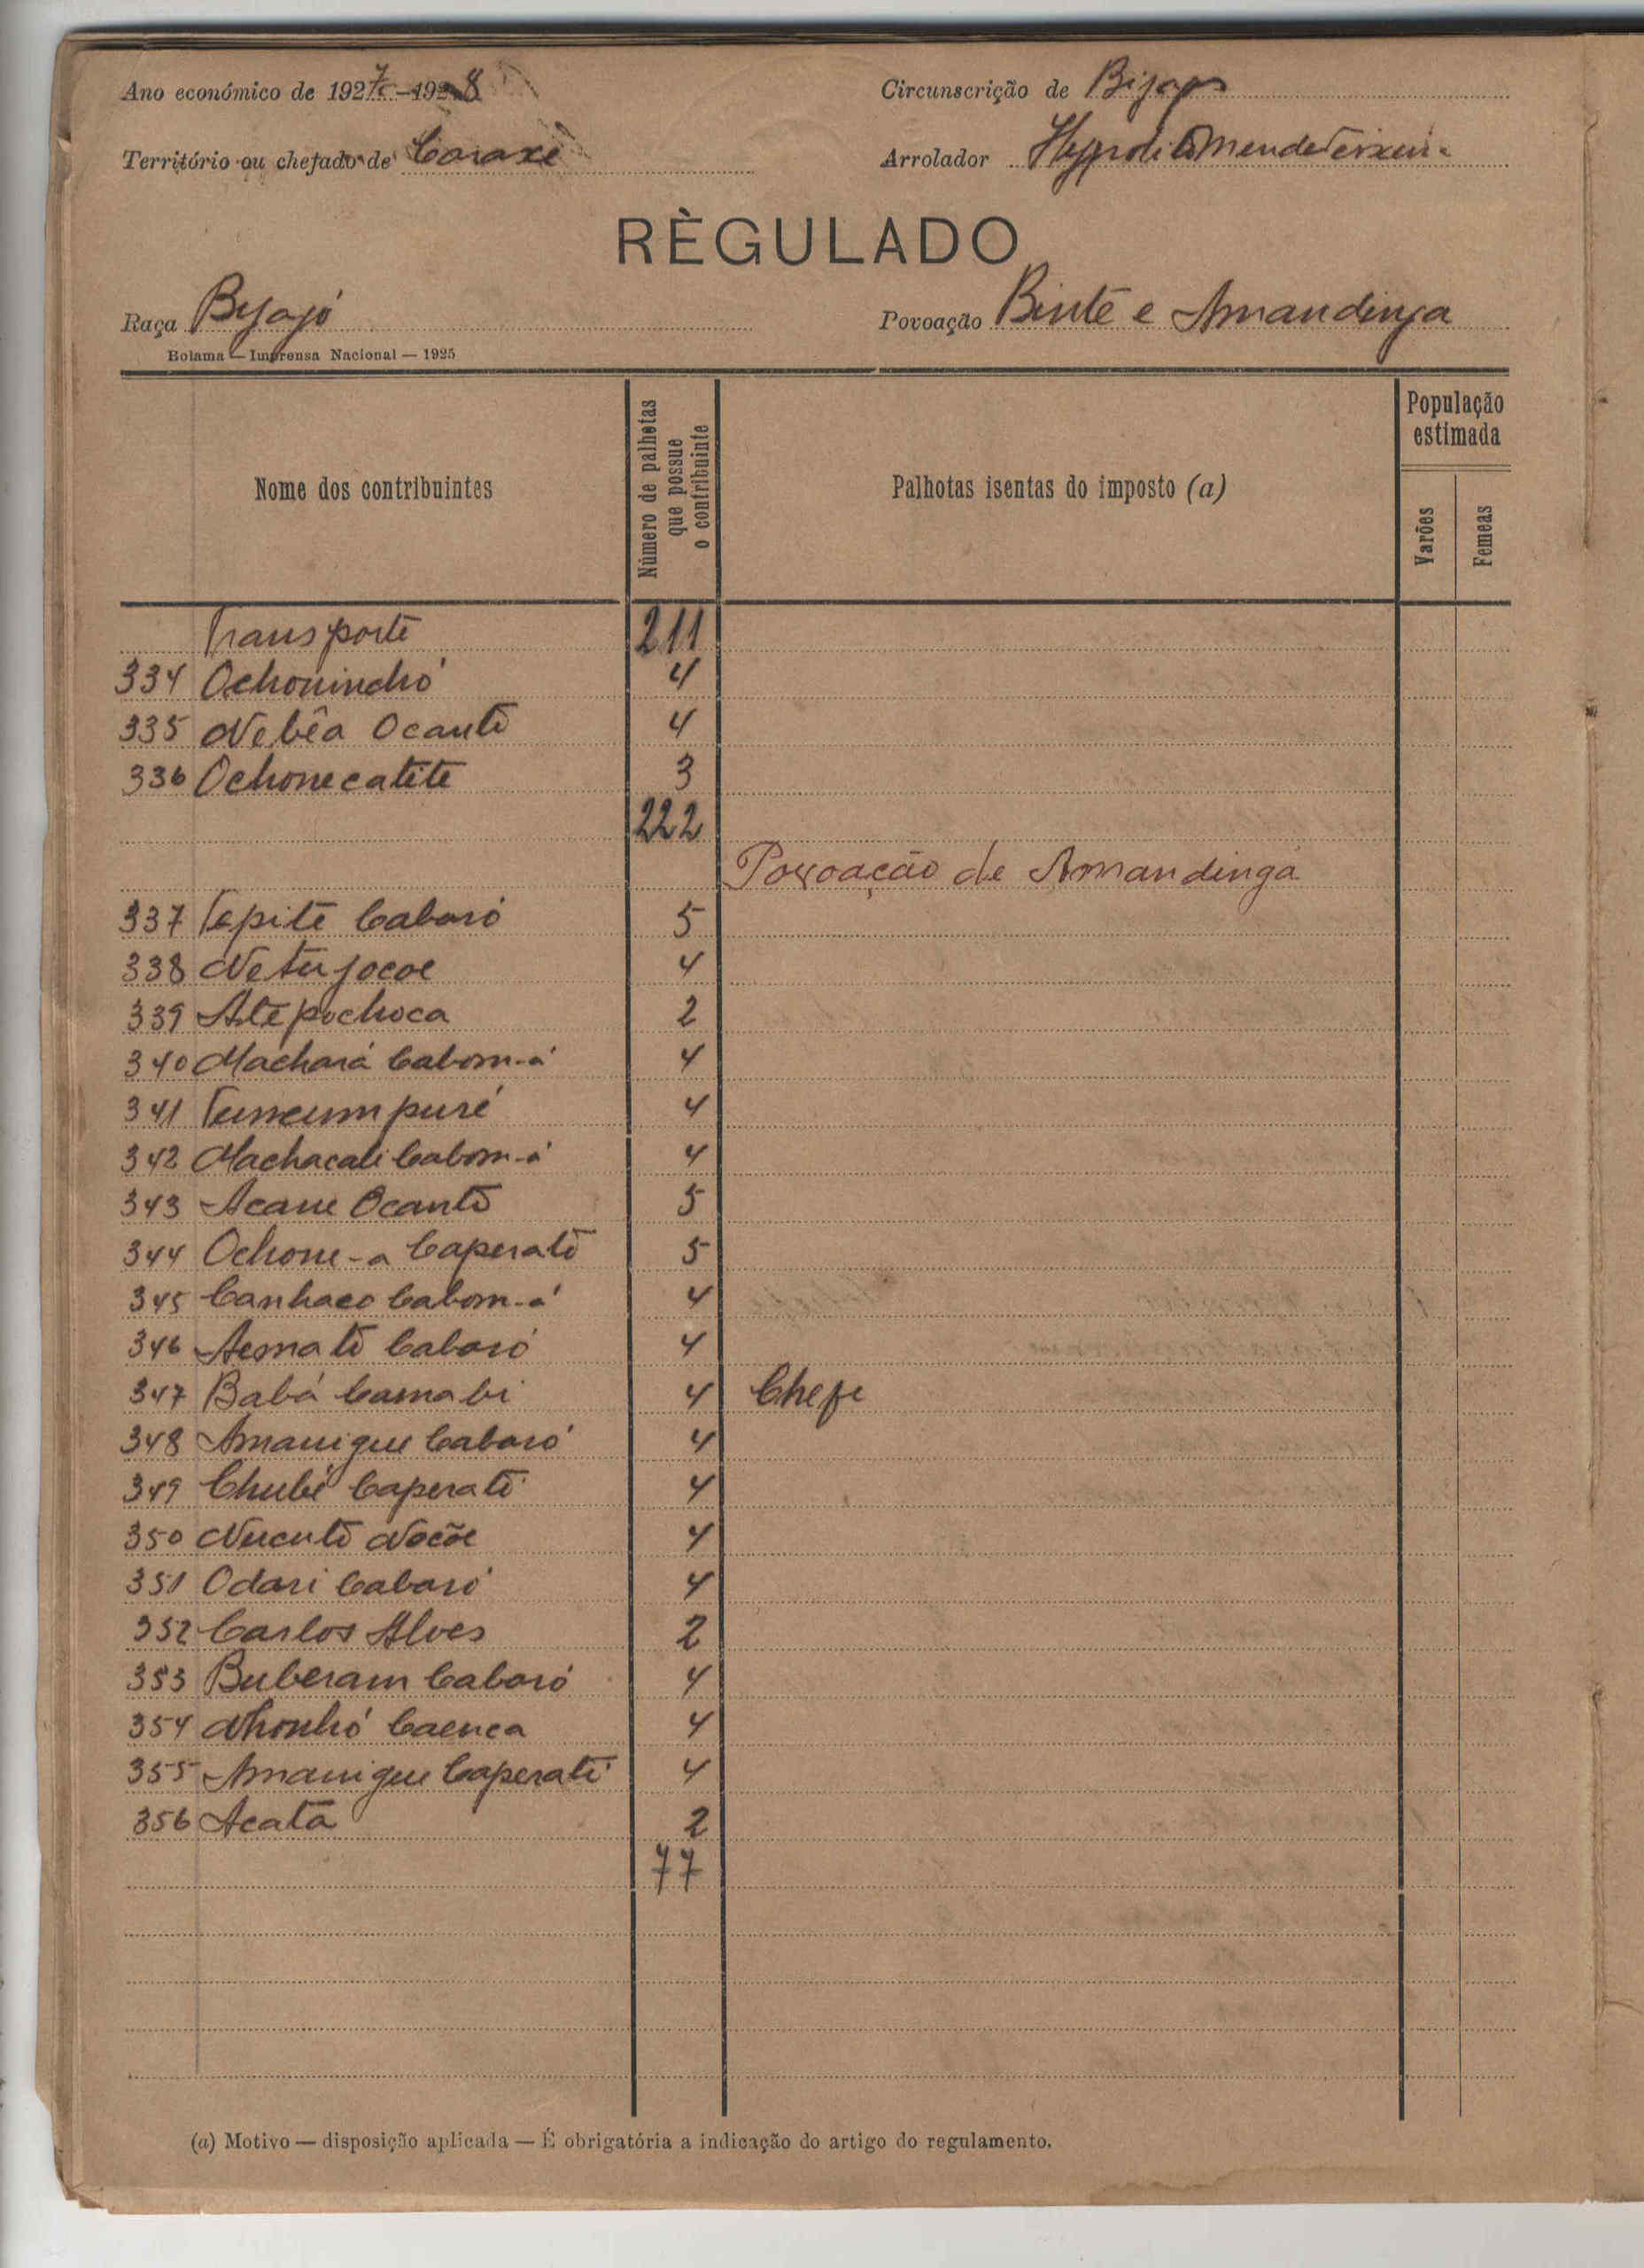 Ano económico de 1927-1928
Circunscrição de Bijagos
Território ou chefado de Caraxe
Arrolador Hypolito Mende Teixeira
RÈGULADO
Raça Byajó
Povoação Binte e Amandinga
Bolama — Imprensa Nacional — 1925
Nome dos contribuintes
Número de palhotas que possue o contribuinte
Palhotas isentas do imposto (a)
População estimada
Varões
Femeas
Transporte 211
334 Ochonincho 4
335 Nebêa Ocantõ 4
336 Ochonecatite 3
222
Povoação de Amandinga
337 Tepite Caboró 5
338 Netujocoe 4
339 Atêpochoca 2
340 Machará Cabom-á 4
341 Tumcumpuré 4
342 Machacali Cabom-á 4
343 Acane Ocantõ 5
344 Ochone-a Caperatõ 5
345 Canhaeo Cabom-á 4
346 Aematõ Caboró 4
347 Babá Camabi 4 Chefe
348 Amanigue Caboró 4
349 Chubé Caperatõ 4
350 Nucutõ Nocõe 4
351 Odari Caboró 4
352 Carlos Alves 2
353 Buberam Caboró 4
354 Nhonhó Caenca 4
355 Amanigue Caperatõ 4
356 Acatã 2
77
(a) Motivo — disposição aplicada — É obrigatória a indicação do artigo do regulamento.